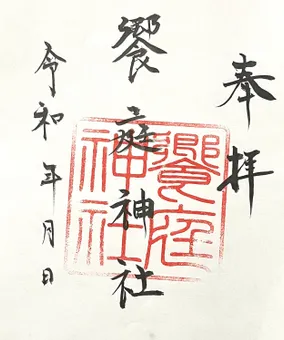 奉拝
饗庭神社
饗庭神社
令和 年 月 日